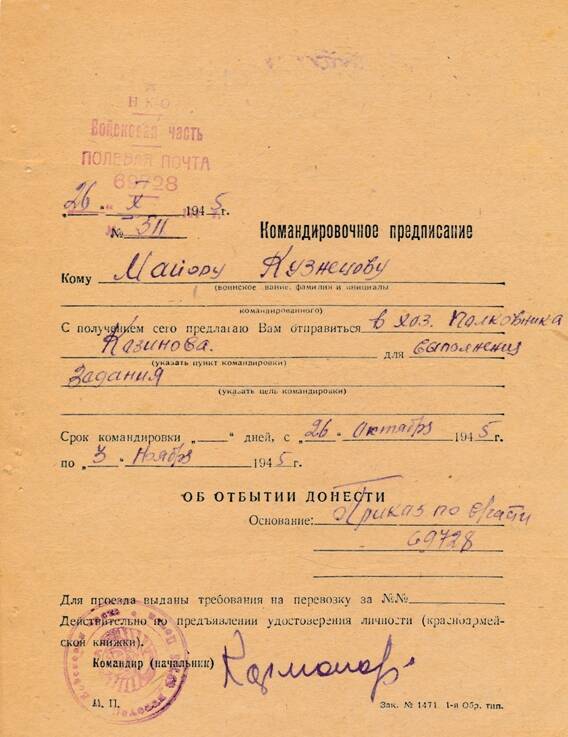 НКО
Войсковая часть
ПОЛЕВАЯ ПОЧТА
69728
„26“ X 1945 г.
№ 311
Командировочное предписание
Кому Майору Кузнецову
(воинское звание, фамилия и инициалы
командированного)
С получением сего предлагаю Вам отправиться в хоз. Полковника
Казинова. для выполнения
(указать пункт командировки)
Задания
(указать цель командировки)
Срок командировки „ “ дней, с „26“ Октября 1945 г.
по „3“ Ноября 1945 г.
ОБ ОТБЫТИИ ДОНЕСТИ
Основание: Приказ по части
69728
Для проезда выданы требования на перевозку за №№
Действительно по предъявлении удостоверения личности (красноармей-
ской книжки).
Командир (начальник)
М. П.
Зак. № 1471 1-я Обр. тип.